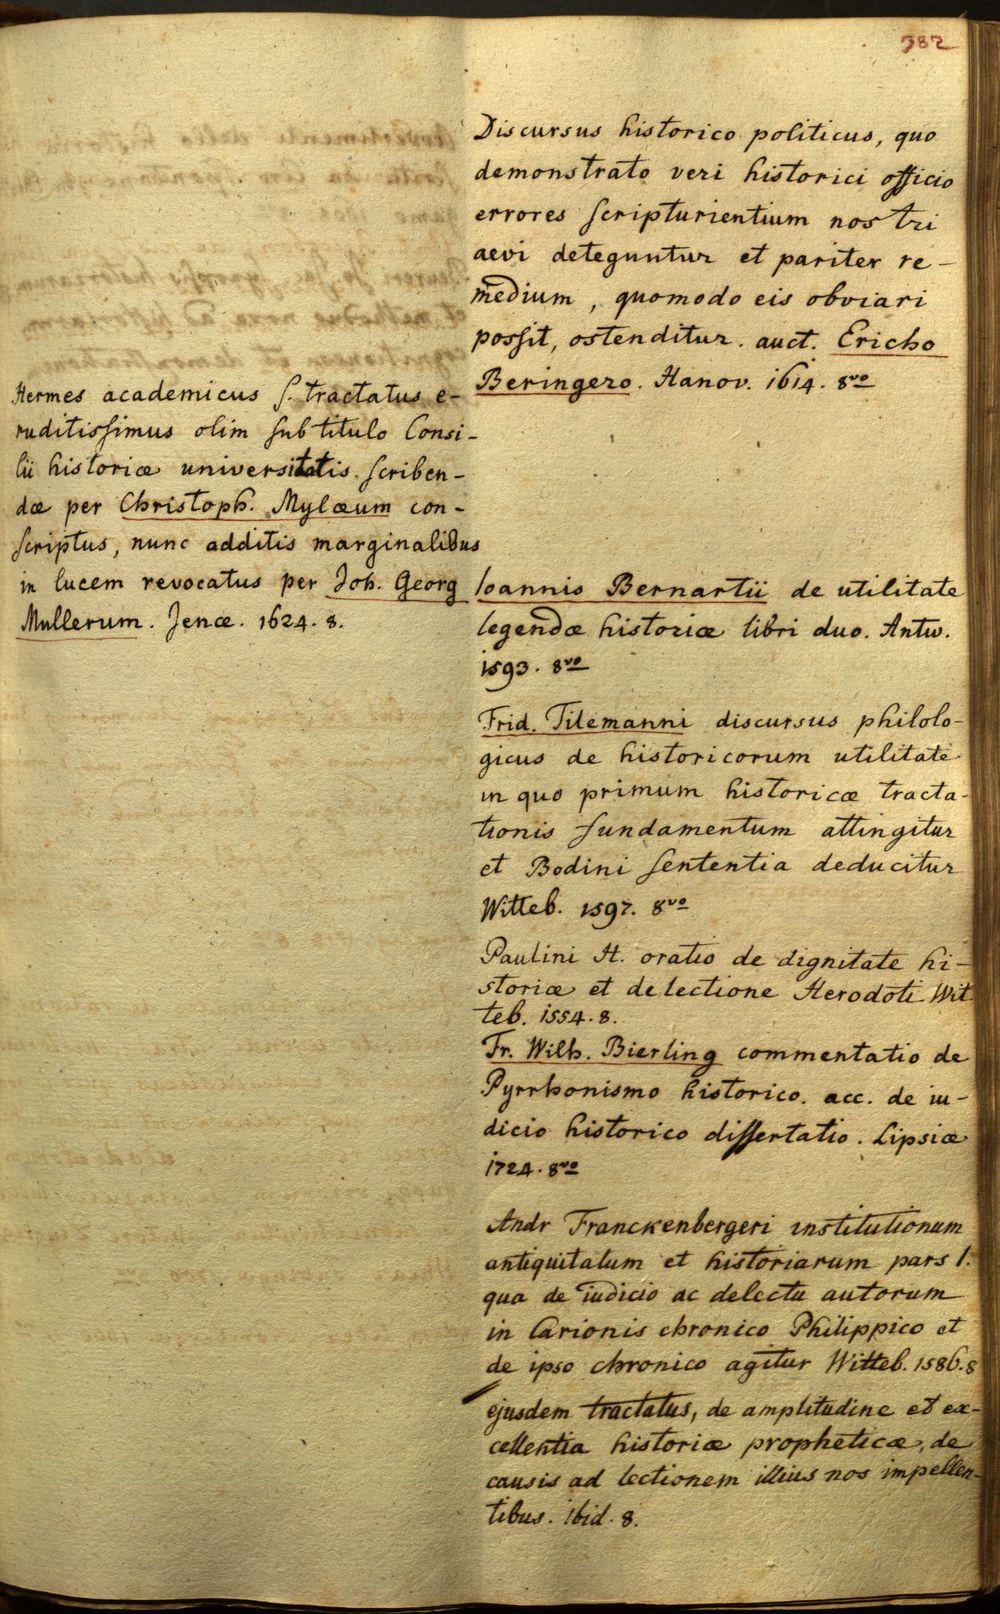 382
Discursus historico politicus, quo
demonstrato veri historici officio
errores scripturientium nostri
aevi deteguntur et pariter re-
medium, quomodo eis obviari
possit, ostenditur. auct. Ericho
Beringero. Hanov. 1614. 8vo
Hermes academicus s. tractatus e-
ruditissimus olim sub titulo Consi-
lii historiæ universitatis scriben-
dæ per Christoph. Mylæum con-
scriptus, nunc additis marginalibus
in lucem revocatus per Joh. Georg
Mullerum. Jenæ. 1624. 8.
Ioannis Bernartii de utilitate
legendæ historiæ libri duo. Antw.
1593. 8vo
Frid. Tilemanni discursus philolo-
gicus de historicorum utilitate
in quo primum historicæ tracta-
tionis fundamentum attingitur
et Bodini sententia deducitur
Witteb. 1597. 8vo
Paulini H. oratio de dignitate hi-
storiæ et de lectione Herodoti. Wit
teb. 1554. 8.
Fr. Wilh. Bierling commentatio de
Pyrrhonismo historico. acc. de iu-
dicio historico dissertatio. Lipsiæ
1724. 8vo
Andr Franckenbergeri institutionum
antiquitatum et historiarum pars 1.
qua de iudicio ac delectu autorum
in Carionis chronico Philippico et
de ipso chronico agitur Witteb. 1586. 8
ejusdem tractatus, de amplitudine et ex-
cellentia historiæ propheticæ, de
causis ad lectionem illius nos impellen-
tibus. ibid. 8.